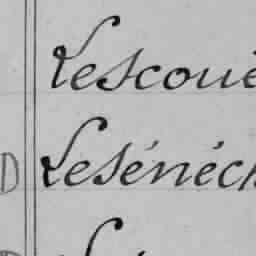 Lescoué
D Lesénéch